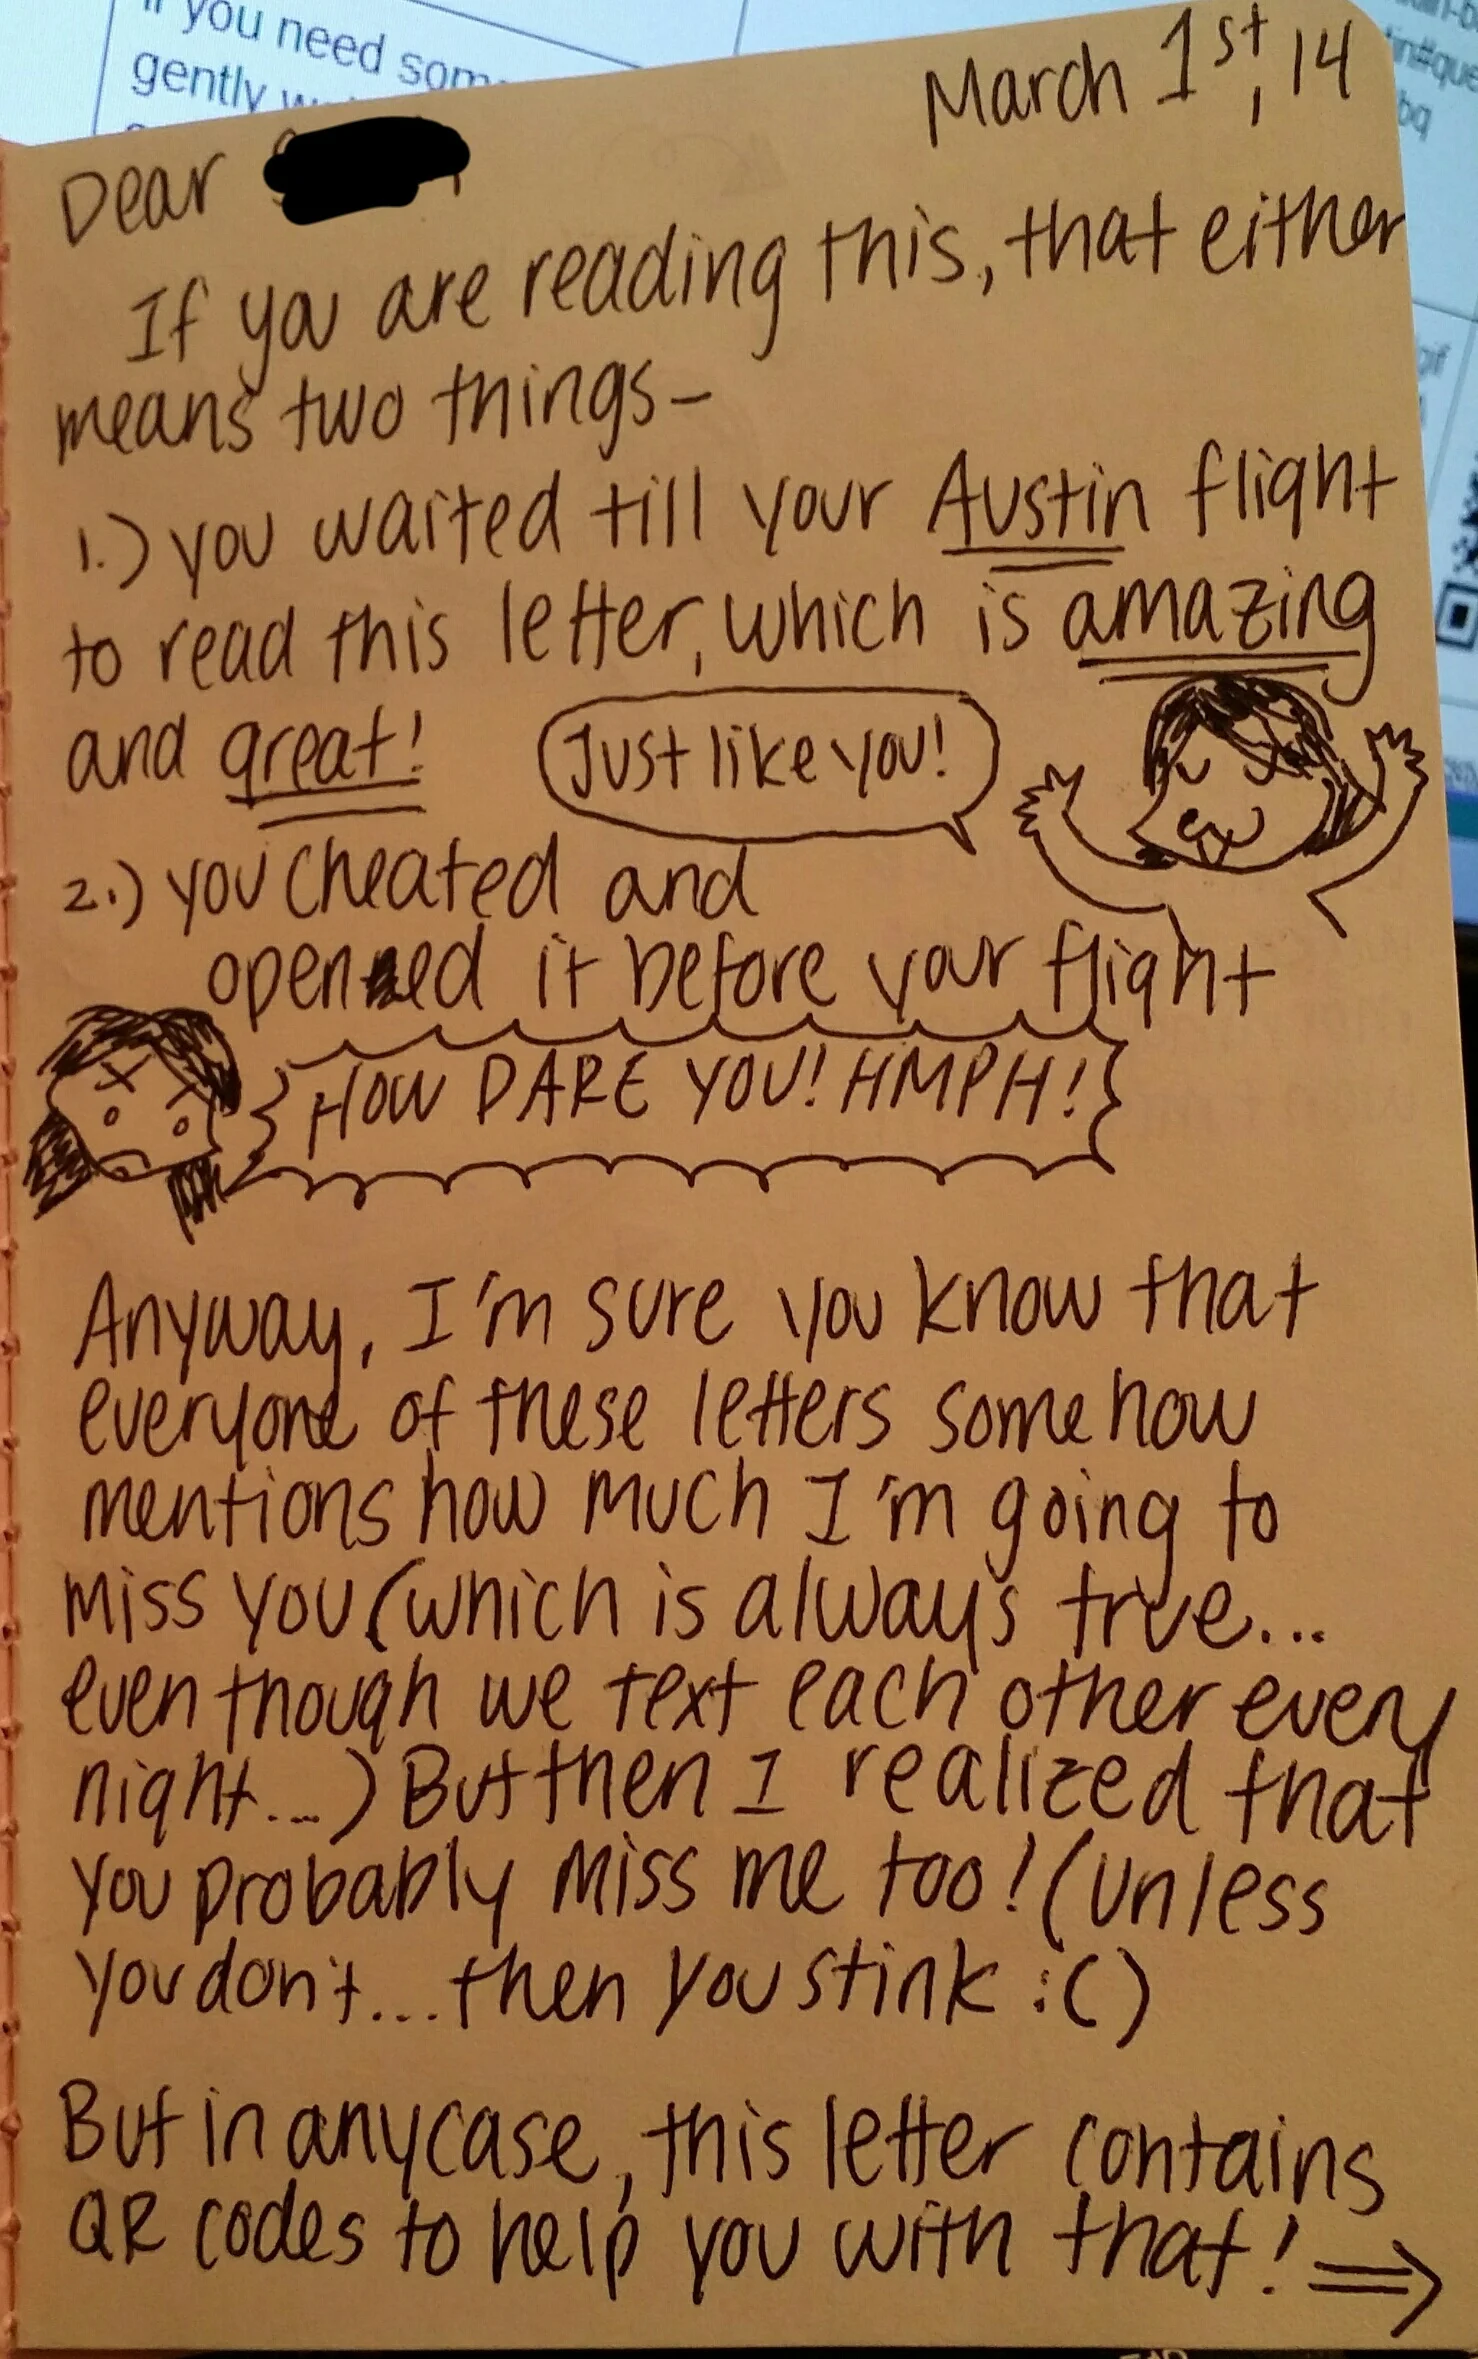 If you need som
gently w
in#que
bq
gif
March 1st, 14
Dear
If you are reading this, that either
means two things-
1.) you waited till your Austin flight
to read this letter, which is amazing
and great!
Just like you!
2.) you cheated and
openned it before your flight
HOW DARE YOU! HMPH!
Anyway, I'm sure you know that
everyone of these letters somehow
mentions how much I'm going to
miss you (which is always true...
even though we text each other every
night...) But then I realized that
you probably miss me too! (unless
you don't... then you stink :()
But in anycase, this letter contains
QR codes to help you with that! ⇒